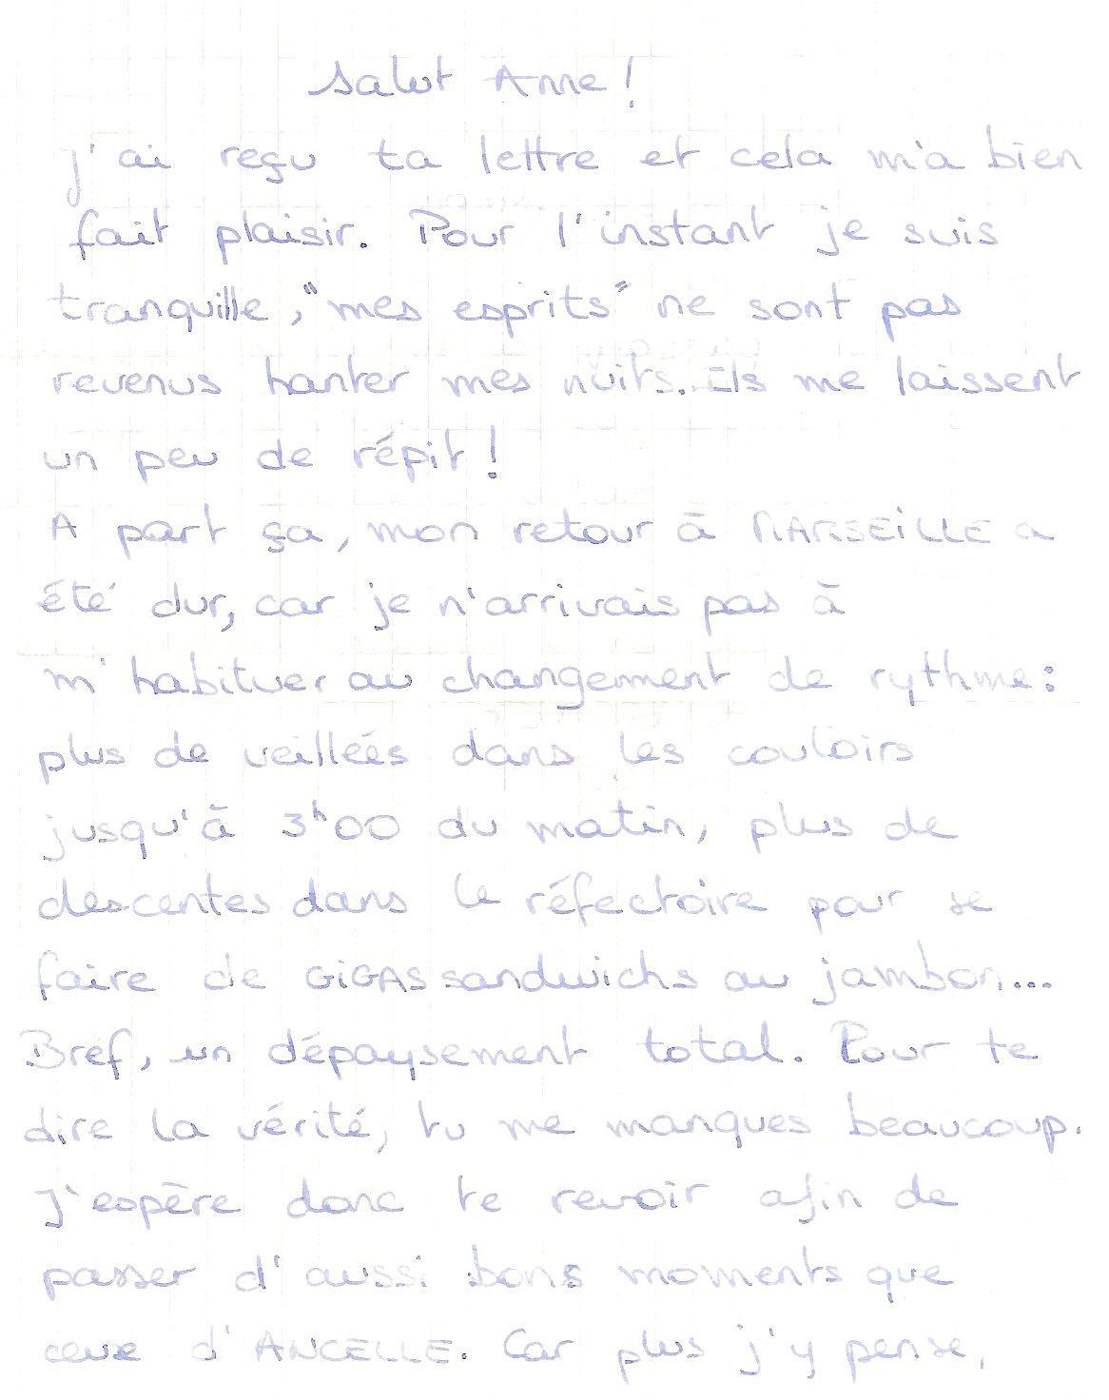 Salut Anne !
J'ai reçu ta lettre et cela m'a bien
fait plaisir. Pour l'instant je suis
tranquille, "mes esprits" ne sont pas
revenus hanter mes nuits. Ils me laissent
un peu de répit !
A part ça, mon retour à MARSEILLE a
été dur, car je n'arrivais pas à
m'habituer au changement de rythme :
plus de veillées dans les couloirs
jusqu'à 3h00 du matin, plus de
descentes dans le réfectoire pour se
faire de GIGAS sandwichs au jambon...
Bref, un dépaysement total. Pour te
dire la vérité, tu me manques beaucoup.
J'espère donc te revoir afin de
passer d'aussi bons moments que
ceux d'ANCELLE. Car plus j'y pense,